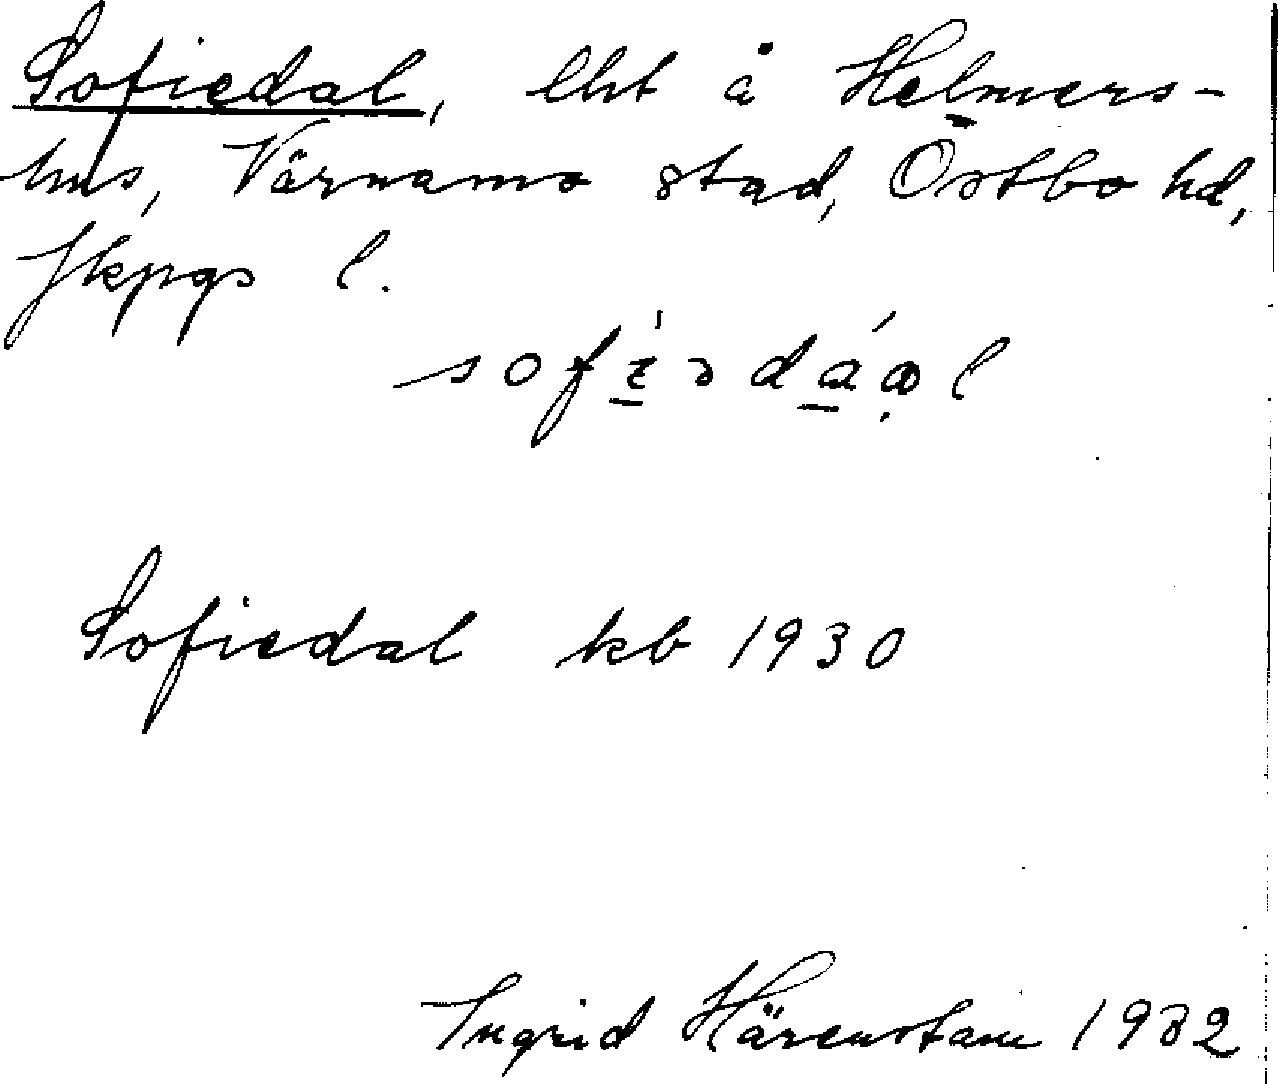 Sofiedal, lht å Helmers-
hus, Värnamo stad, Östbo hd,
Jkpgs l.
Sofiedal kb 1930
Ingrid Härenstam 1932